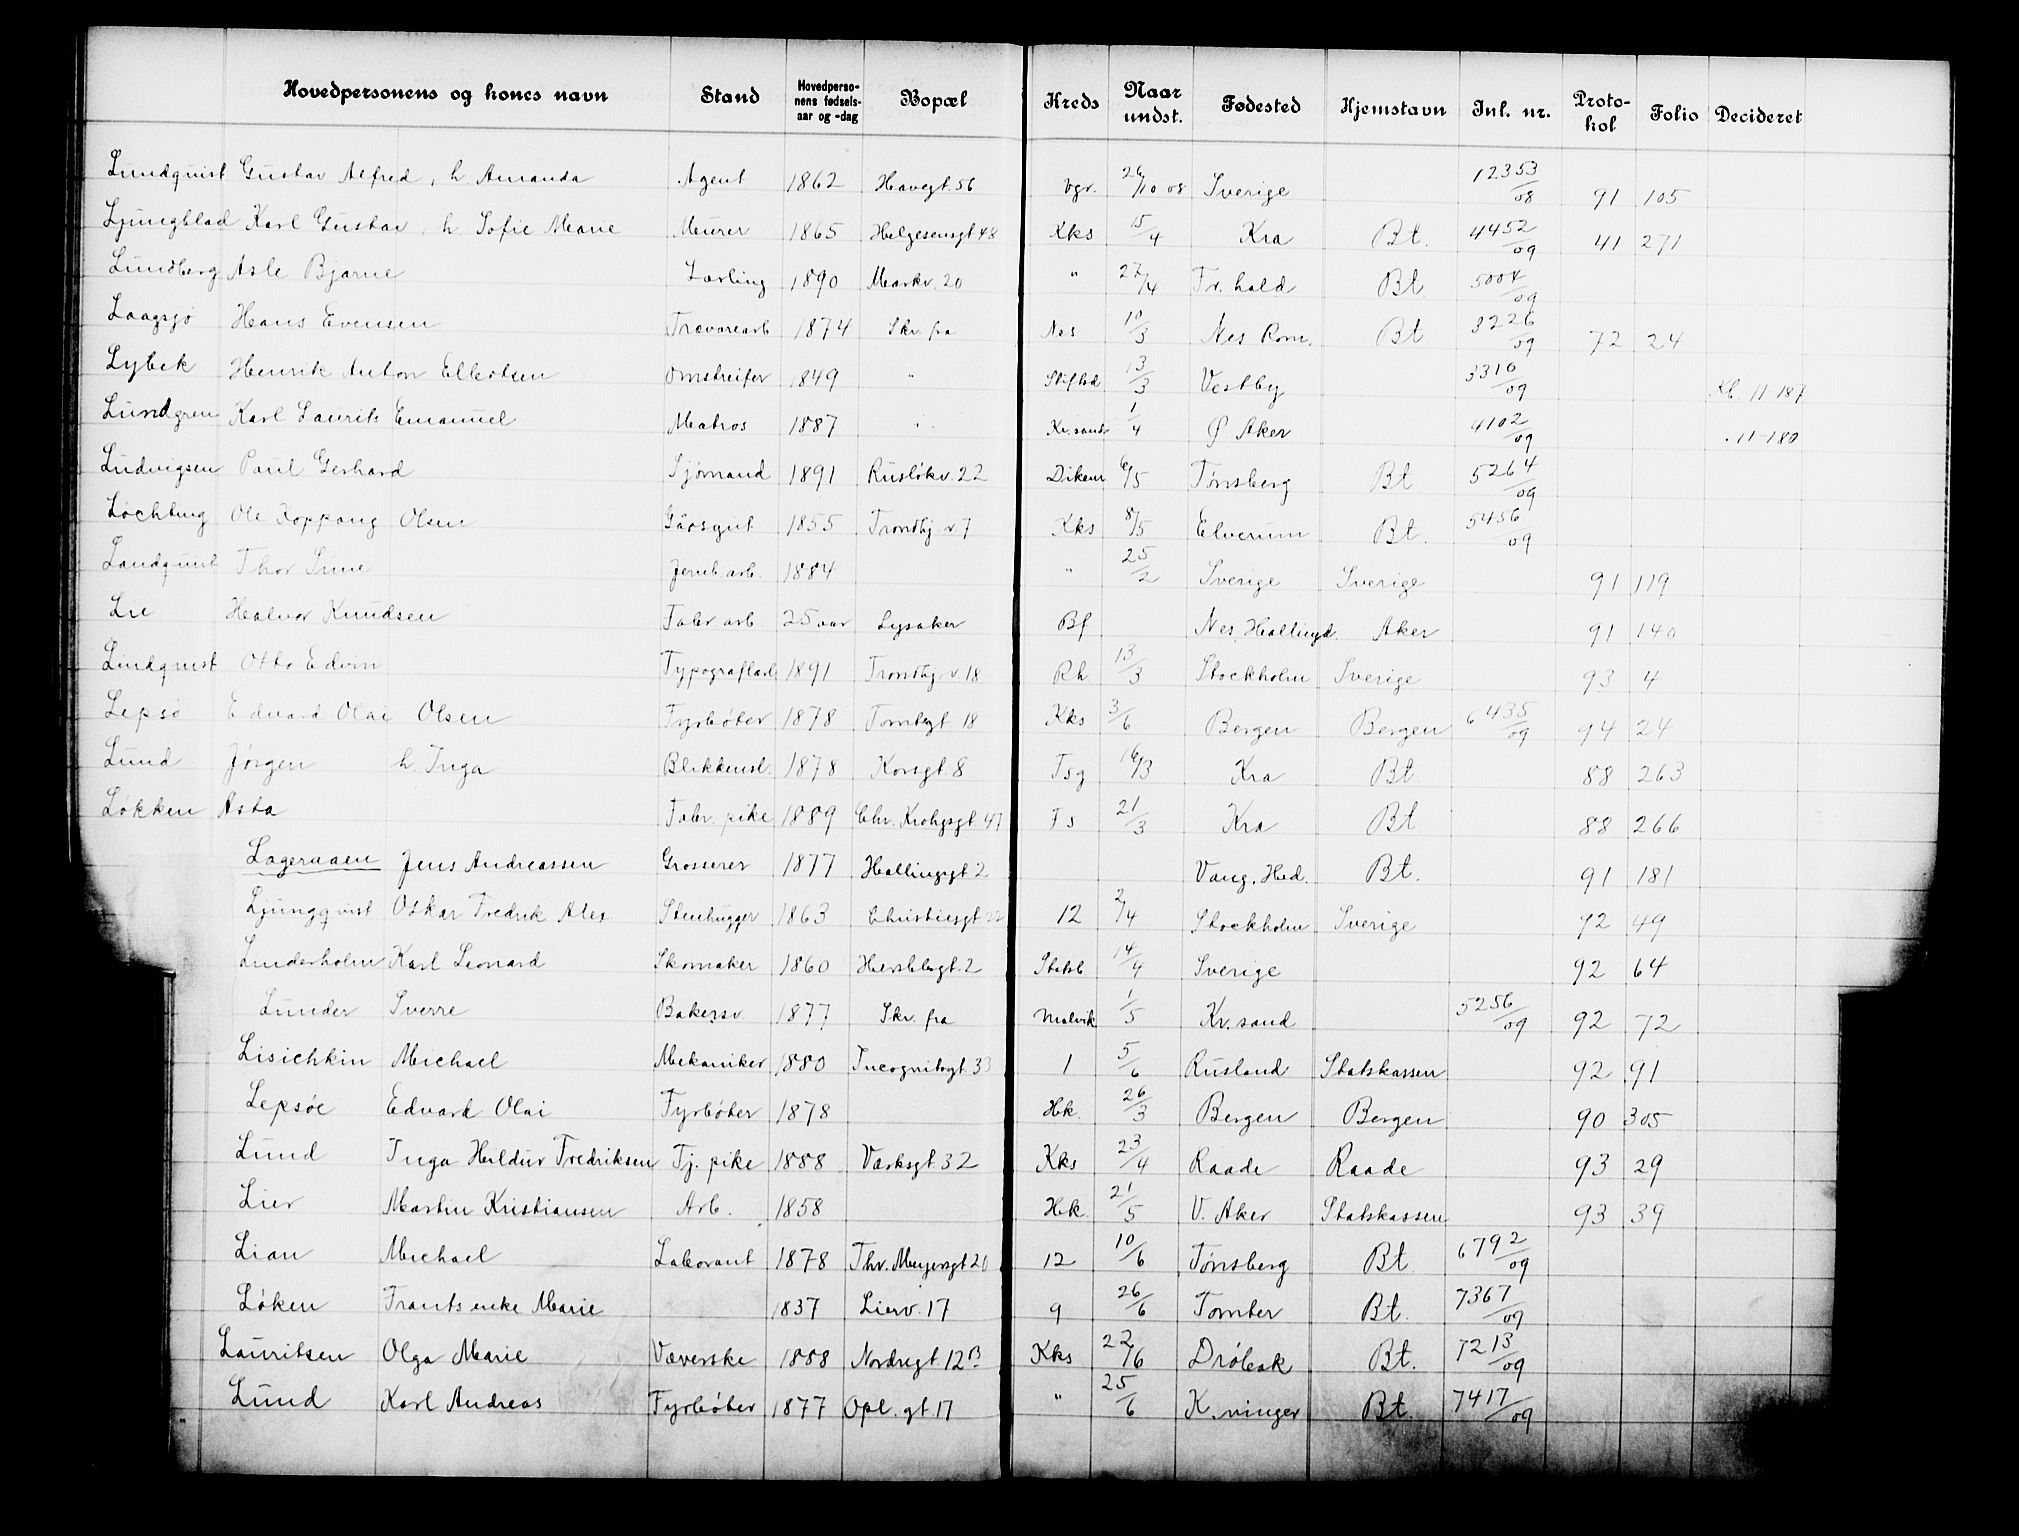 Hovedpersonens og kones navn Stand Hovedperso-nens fødsels-aar og -dag Bopæl Kreds Naar undst. Fødested Hjemstavn Inl. nr. Proto-kol Folio Decideret
Lundquist Gustav Alfred, h. Amanda Agent 1862 Havegt. 56 Vgr. 26/10 08 Sverige 12353/08 91 105
Ljungblad Karl Gustav, h. Sofie Marie Murer 1865 Helgesensgt 48 Kks 15/4 Kra Bt. 4452/09 41 271
Lundberg Asle Bjarne Lærling 1890 Markv. 20 " 27/4 Fr. hald Bt. 5004/09
Laagsjø Hans Evensen Trævarearb 1874 Skr. fra Nes 10/3 Nes Rom. Bt 3226/09 72 24
Lybek Henrik Anton Ellertsen Omstreifer 1849 " 13/3 Vestby 3310/09 Kl. 11-187
Lundgren Karl Laurits Emanuel Matros 1887 " Kr. sand 1/4 Ø. Aker 4102/09 " 11-180
Ludvigsen Paul Gerhard Sjømand 1891 Rusløkv. 22 Dikem 6/5 Tønsberg Bt 5264/09
Løchting Ole Koppang Olsen Gaosgut 1855 Trondhj. v 7 Kks 8/5 Elverum Bt. 5456/09
Landquist Thor Sune Jernb arb. 1884 " 25/2 Sverige Sverige 91 119
Lie Halvor Knudsen Fabr. arb. 25 aar Lysaker Bf Nes, Hallingd. Aker 91 140
Lindquist Otto Edvin Typografarb 1891 Trondhj. v. 18 Rh 13/3 Stockholm Sverige 93 4
Lepsø Edvard Olai Olsen Fyrbøter 1878 Tomtegt 18 Kks 3/6 Bergen Bergen 6435/09 94 24
Lund Jørgen h. Inga Blikkensl. 1878 Korsgt. 8 Tsg 16/3 Kra Bt. 88 263
Løkken Asta Fabr. pike 1889 Chr. Krohgsgt 47 Fs 21/3 Kra Bt 88 266
Lageraaen Jens Andreassen Grosserer 1877 Hallingsgt 2 Vang, Hed. Bt. 91 181
Ljungqvist Oskar Fredrik Alex Stenhugger 1863 Christiesgt 22 12 2/4 Stockholm Sverige 92 49
Linderholm Karl Leonard Skomaker 1860 Herslebsgt. 2 Statsb 14/4 Sverige 92 64
Lunder Sverre Bakersv. 1877 Skr. fra Malvik 1/5 Kr. sand 5256/09 92 72
Lisichkin Michael Mekaniker 1880 Incognitogt. 33 1 5/6 Rusland Statskassen 92 91
Lepsøe Edvard Olai Fyrbøter 1878 Hk. 26/3 Bergen Bergen 90 305
Lund Inga Haldur Fredriksen Tj. pike 1888 Værksgt 32 Kks 23/4 Raade Raade 93 29
Lier Martin Kristiansen Arb. 1858 Hk. 21/5 V. Aker Statskassen 93 39
Lian Michael Laborant 1878 Thv. Meyersgt 20 12 10/6 Tønsberg Bt. 6792/09
Løken Frantseske Marie 1837 Lierv. 17 9 26/6 Tomter Bt. 7367/09
Lauritsen Olga Marie Væverske 1888 Nordregt. 12 B Kks 22/6 Drøbak Bt. 7213/09
Lund Karl Andreas Fyrbøter 1877 Opl. gt 17 " 25/6 K. vinger Bt. 7417/09